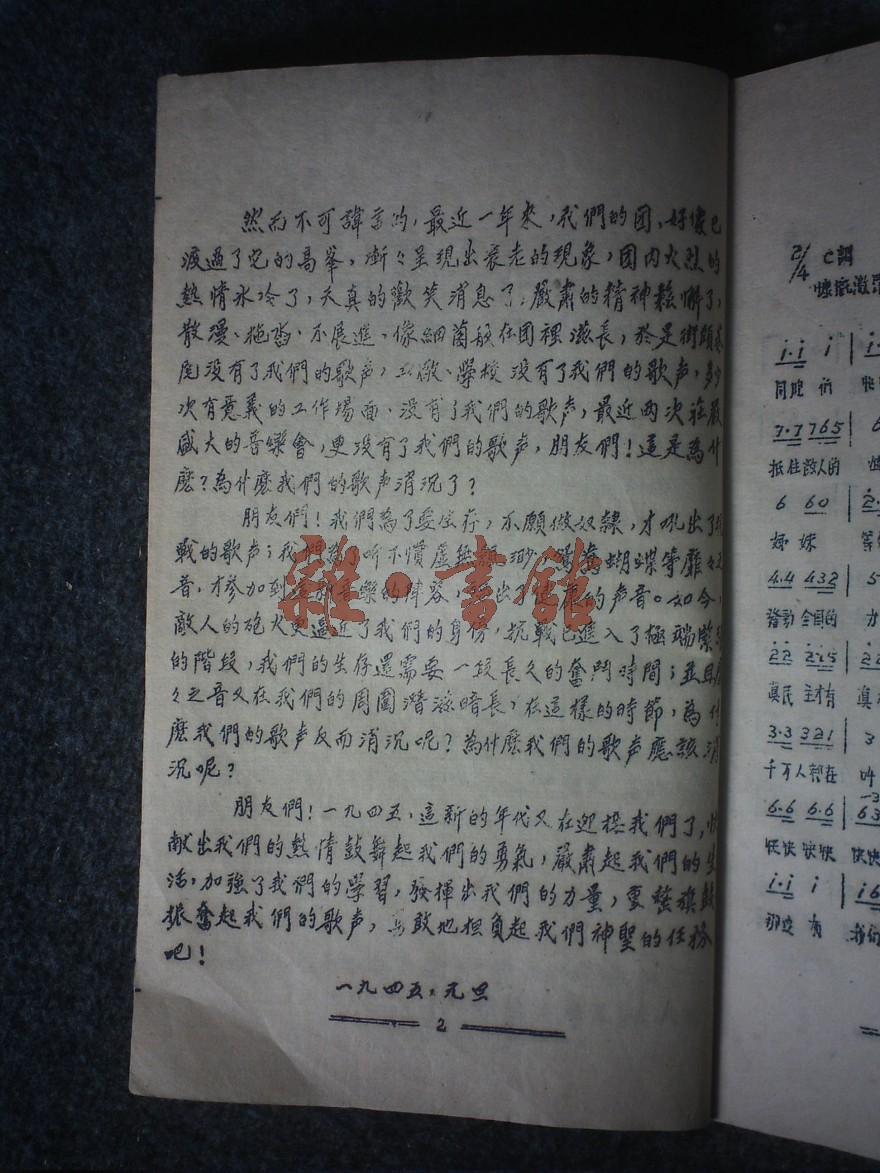 然而不可諱言的，最近一年來，我們的团，好像已
渡過了它的高峯，漸々呈現出衰老的現象，团内火烈的
熱情氷冷了，天真的歡笑消息了；嚴肅的精神鬆懈了，
散漫、拖沓、不展進、像細菌般在团裡滋長，於是街頭巷
尾没有了我們的歌声，學校没有了我們的歌声，多少
次有意義的工作場面、没有了我們的歌声，最近兩次莊嚴
盛大的音樂會，更没有了我們的歌声，朋友們！這是為什
麽？為什麽我們的歌声消沉了？
朋友們！我們為了要生存，不願做奴隸，才吼出了
戰的歌声；我們為了听不慣虛無 蝴蝶等靡々之
音，才参加到 音樂的陣容， 出了 的声音。如今，
敵人的砲火更逼近了我們的身傍，抗戰已進入了極端緊
的階段，我們的生存還需要一段長久的奮鬥時間；並且
々之音又在我們的周圍潛滋暗長，在這樣的時節，為什
麽我們的歌声反而消沉呢？為什麽我們的歌声應該消
沉呢？
朋友們！一九四五，這新的年代又在迎接我們了，快
献出我們的熱情鼓舞起我們的勇氣，嚴肅起我們的生
活，加強了我們的學習，發揮出我們的力量，要搖旗鼓
振奮起我們的歌声，勇敢地担負起我們神聖的任務
吧！
一九四五，元旦
2
雜·書館
2/4 C調
i·i i
同胞们
7·7 765
抵住敌人的
6 60
姊妹
4·4 432
發動全国的
22 2i5
真民主才有
3·3 321
千万人都在
6·6 6·6
快快快快
i·i i
那